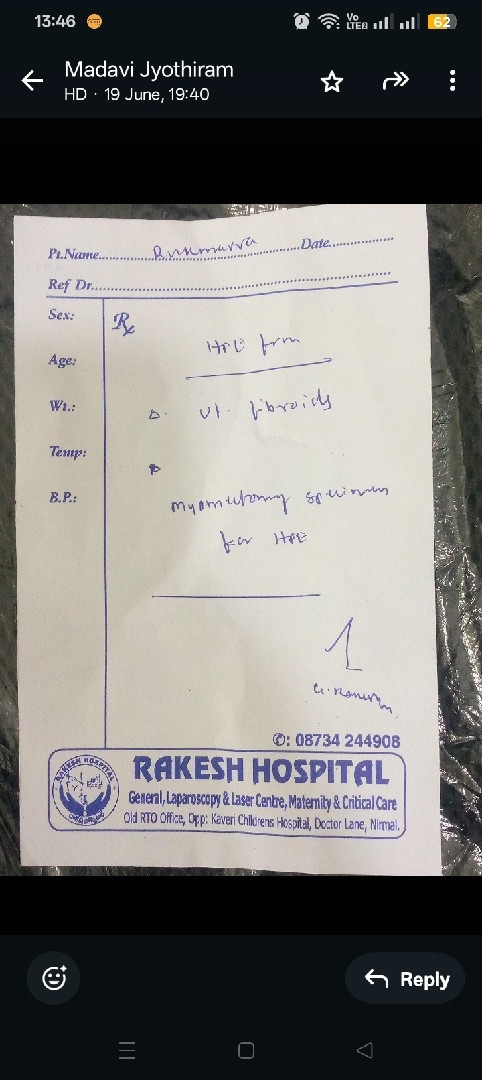 13:46
Vo
LTE2
62
Madavi Jyothiram
HD · 19 June, 19:40
Pt.Name............ Date............
Ref Dr............
Sex:
Rx
HPE form
Age:
Wt.:
Δ. Ut. fibroids
Temp:
B.P.:
Myomectomy specimen
for HPE
✆: 08734 244908
RAKESH HOSPITAL
RAKESH HOSPITAL
General, Laparoscopy & Laser Centre, Maternity & Critical Care
Old RTO Office, Opp: Kaveri Childrens Hospital, Doctor Lane, Nirmal.
Reply